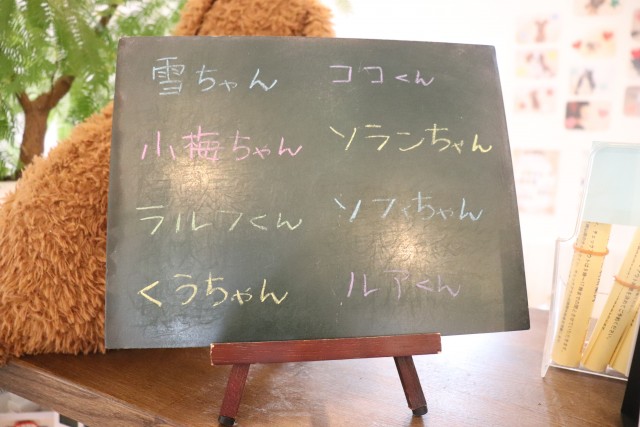 雪ちゃん
小梅ちゃん
ラルフくん
くうちゃん
ココくん
ソランちゃん
ソフィちゃん
ルアくん